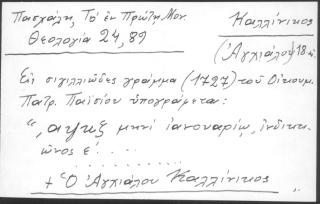 Πασχάλη, Τό ἐν Πρώτῃ Μον.
Θεολογία 24, 89
Καλλίνικος
(Ἀγχιάλου) 18
Εἰς σιγιλλιῶδες γράμμα (1727) τοῦ Οἰκουμ.
Πατρ. Παϊσίου ὑπογράφεται:
“, αψκζ μηνί ἰανουαρίῳ, ἰνδικτι-
ῶνος ε΄...
..........
+ Ὁ Ἀγχιάλου Καλλίνικος